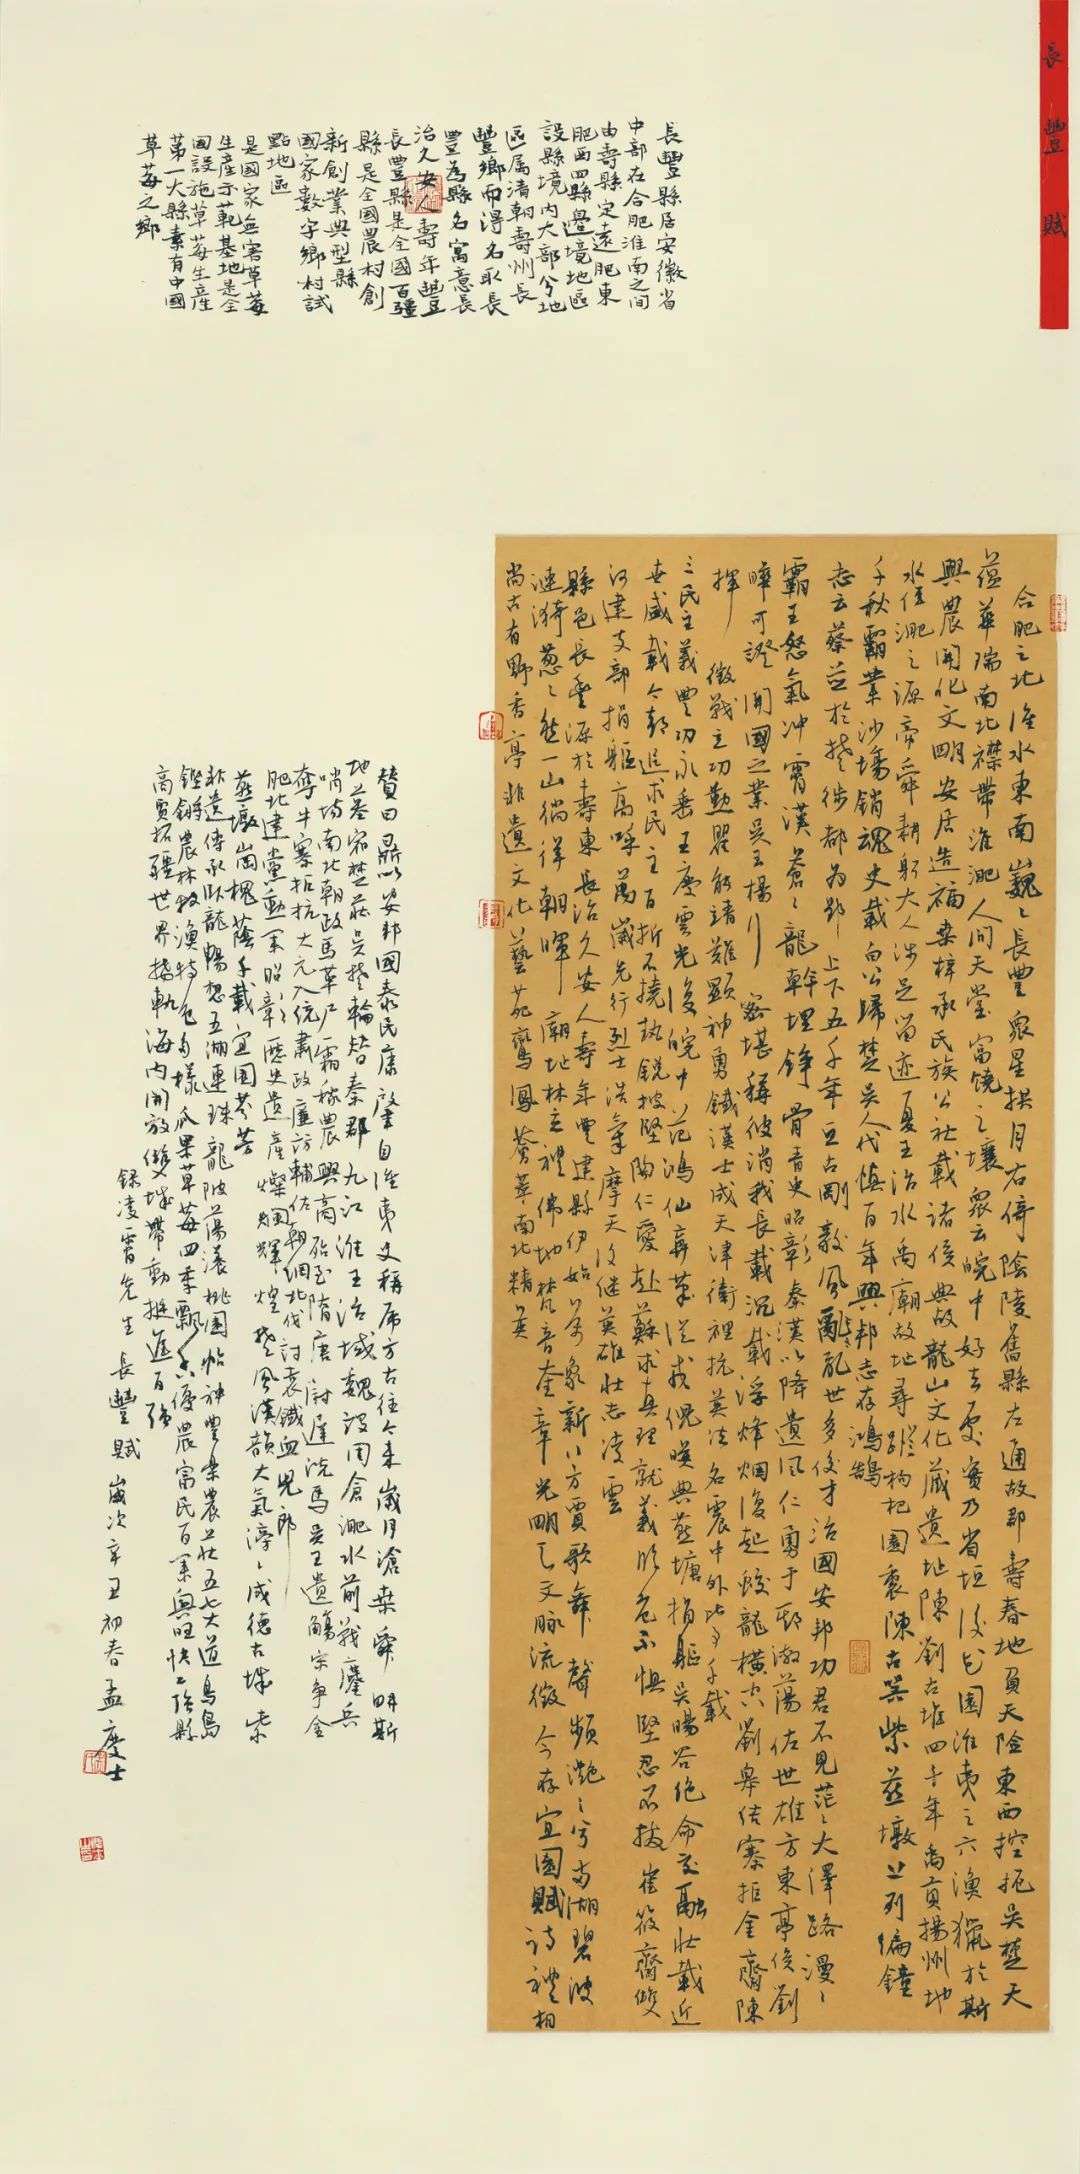 長豐賦
長豐縣居安徽省
中部在合肥淮南之間
由壽縣定遠肥東
肥西四縣邊境地區
設縣境內大部分地
區属清朝壽州長
豐鄉而得名取長
豐為縣名寓意長
治久安人壽年豐
長豐縣是全國百强
縣是全國農村創
新創業典型縣
國家數字鄉村試
點地區
是國家無害草莓
生產示範基地是全
國設施草莓生產
第一大縣素有中國
草莓之鄉
合肥之北淮水東南巍〻長豐眾星拱月右倚陰陵舊縣左通故郡壽春地負天險東西控扼吳楚天
蘊華瑞南北襟帶淮淝人間天堂富饒之壤眾云皖中好去處實乃省垣後花園淮夷之六漁獵於斯
興農開化文明安居造福桑梓承民族公社載諸侯典故龍山文化藏遺址陳劉古堆四千年禹貢揚州地
水住淝之源帝舜耕躬大人涉足留迹夏王治水禹廟故址尋蹤枸杞園裏陳古吳柴蒸墩上列編鐘
千秋霸業沙場銷魂史載白公歸楚吳人代慎百年興邦志存鴻鵠
志云蔡並於楚徙都為郢上下五千年亘古剛毅風亂世多俊才治國安邦功君不見茫〻大澤路漫〻
霸王怒氣冲霄漢蒼〻龍幹埋錚骨青史昭彰秦漢以降遺風仁勇于邸激蕩佐世雄方東亭侯劉
曄可證開國之業吳王楊行密堪稱彼淌我長載沉載浮烽烟復起蛟龍橫空劉皋佶寨拒金齋陳
揮徵戰立功勤瞿能靖難顯神勇鐵漢士成天津衛裡抗英法名震中外此事千載
三民主義豐功永垂王慶雲光復皖中范鴻仙棄筆從戎倪映典燕塘捐軀吳暘谷絶命交融壯載近
世盛載今朝追求民主百折不撓執銳披堅陶仁愛赴蘇求真理就義臨危不懼堅忍不拔崔筱齋雙
河建支部捐軀高呼萬歲先行烈士浩氣摩天後继英雄壯志凌雲
縣邑長豐源於壽東長治久安人壽年豐建縣伊始萬象新八方賈歌舞聲頻灔〻兮高湖碧波
漣漪葱〻然一山徜徉朝暉廟址林立禮佛地梵音奎章光明之文脉流徵今存宜園賦詩禮相
尚古有野香亭非遺文化藝苑鸞鳳薈萃南北精英
贊曰鼎以安邦國泰民康肇自淮夷史稱虎方古往今来歲月滄桑舜耕斯
地上蔡宿楚莊吳楚輪替秦郡九江淮王治域魏設閏倉淝水前戰鏖兵
哨塲南北朝政馬革户霜稼農興高殆至隋唐尉遲洗馬吳王遺觴宋争金
奪牛寨拒抗大元入统肃政廉訪輔佐朝綱北伐討袁鐵血兒郎
肥北建黨勳業昭彰歷史遺產燦爛輝煌楚風漢韻大氣滂〻咸德古城柴
蒸墩崗槐蔭千載宜園芬芳
非遺傳承卧龍暢想五湖連珠龍陂蕩漾桃園帖神豐樂農莊五七大道鳥島
鏗鏘農林牧漁特色多樣瓜果草莓四季飄香優農富民百業興旺快上强縣
高質拓疆世界接軌海內開放雙城帶動挺進百强
錄凌霄先生長豐賦歲次辛丑初春孟慶士